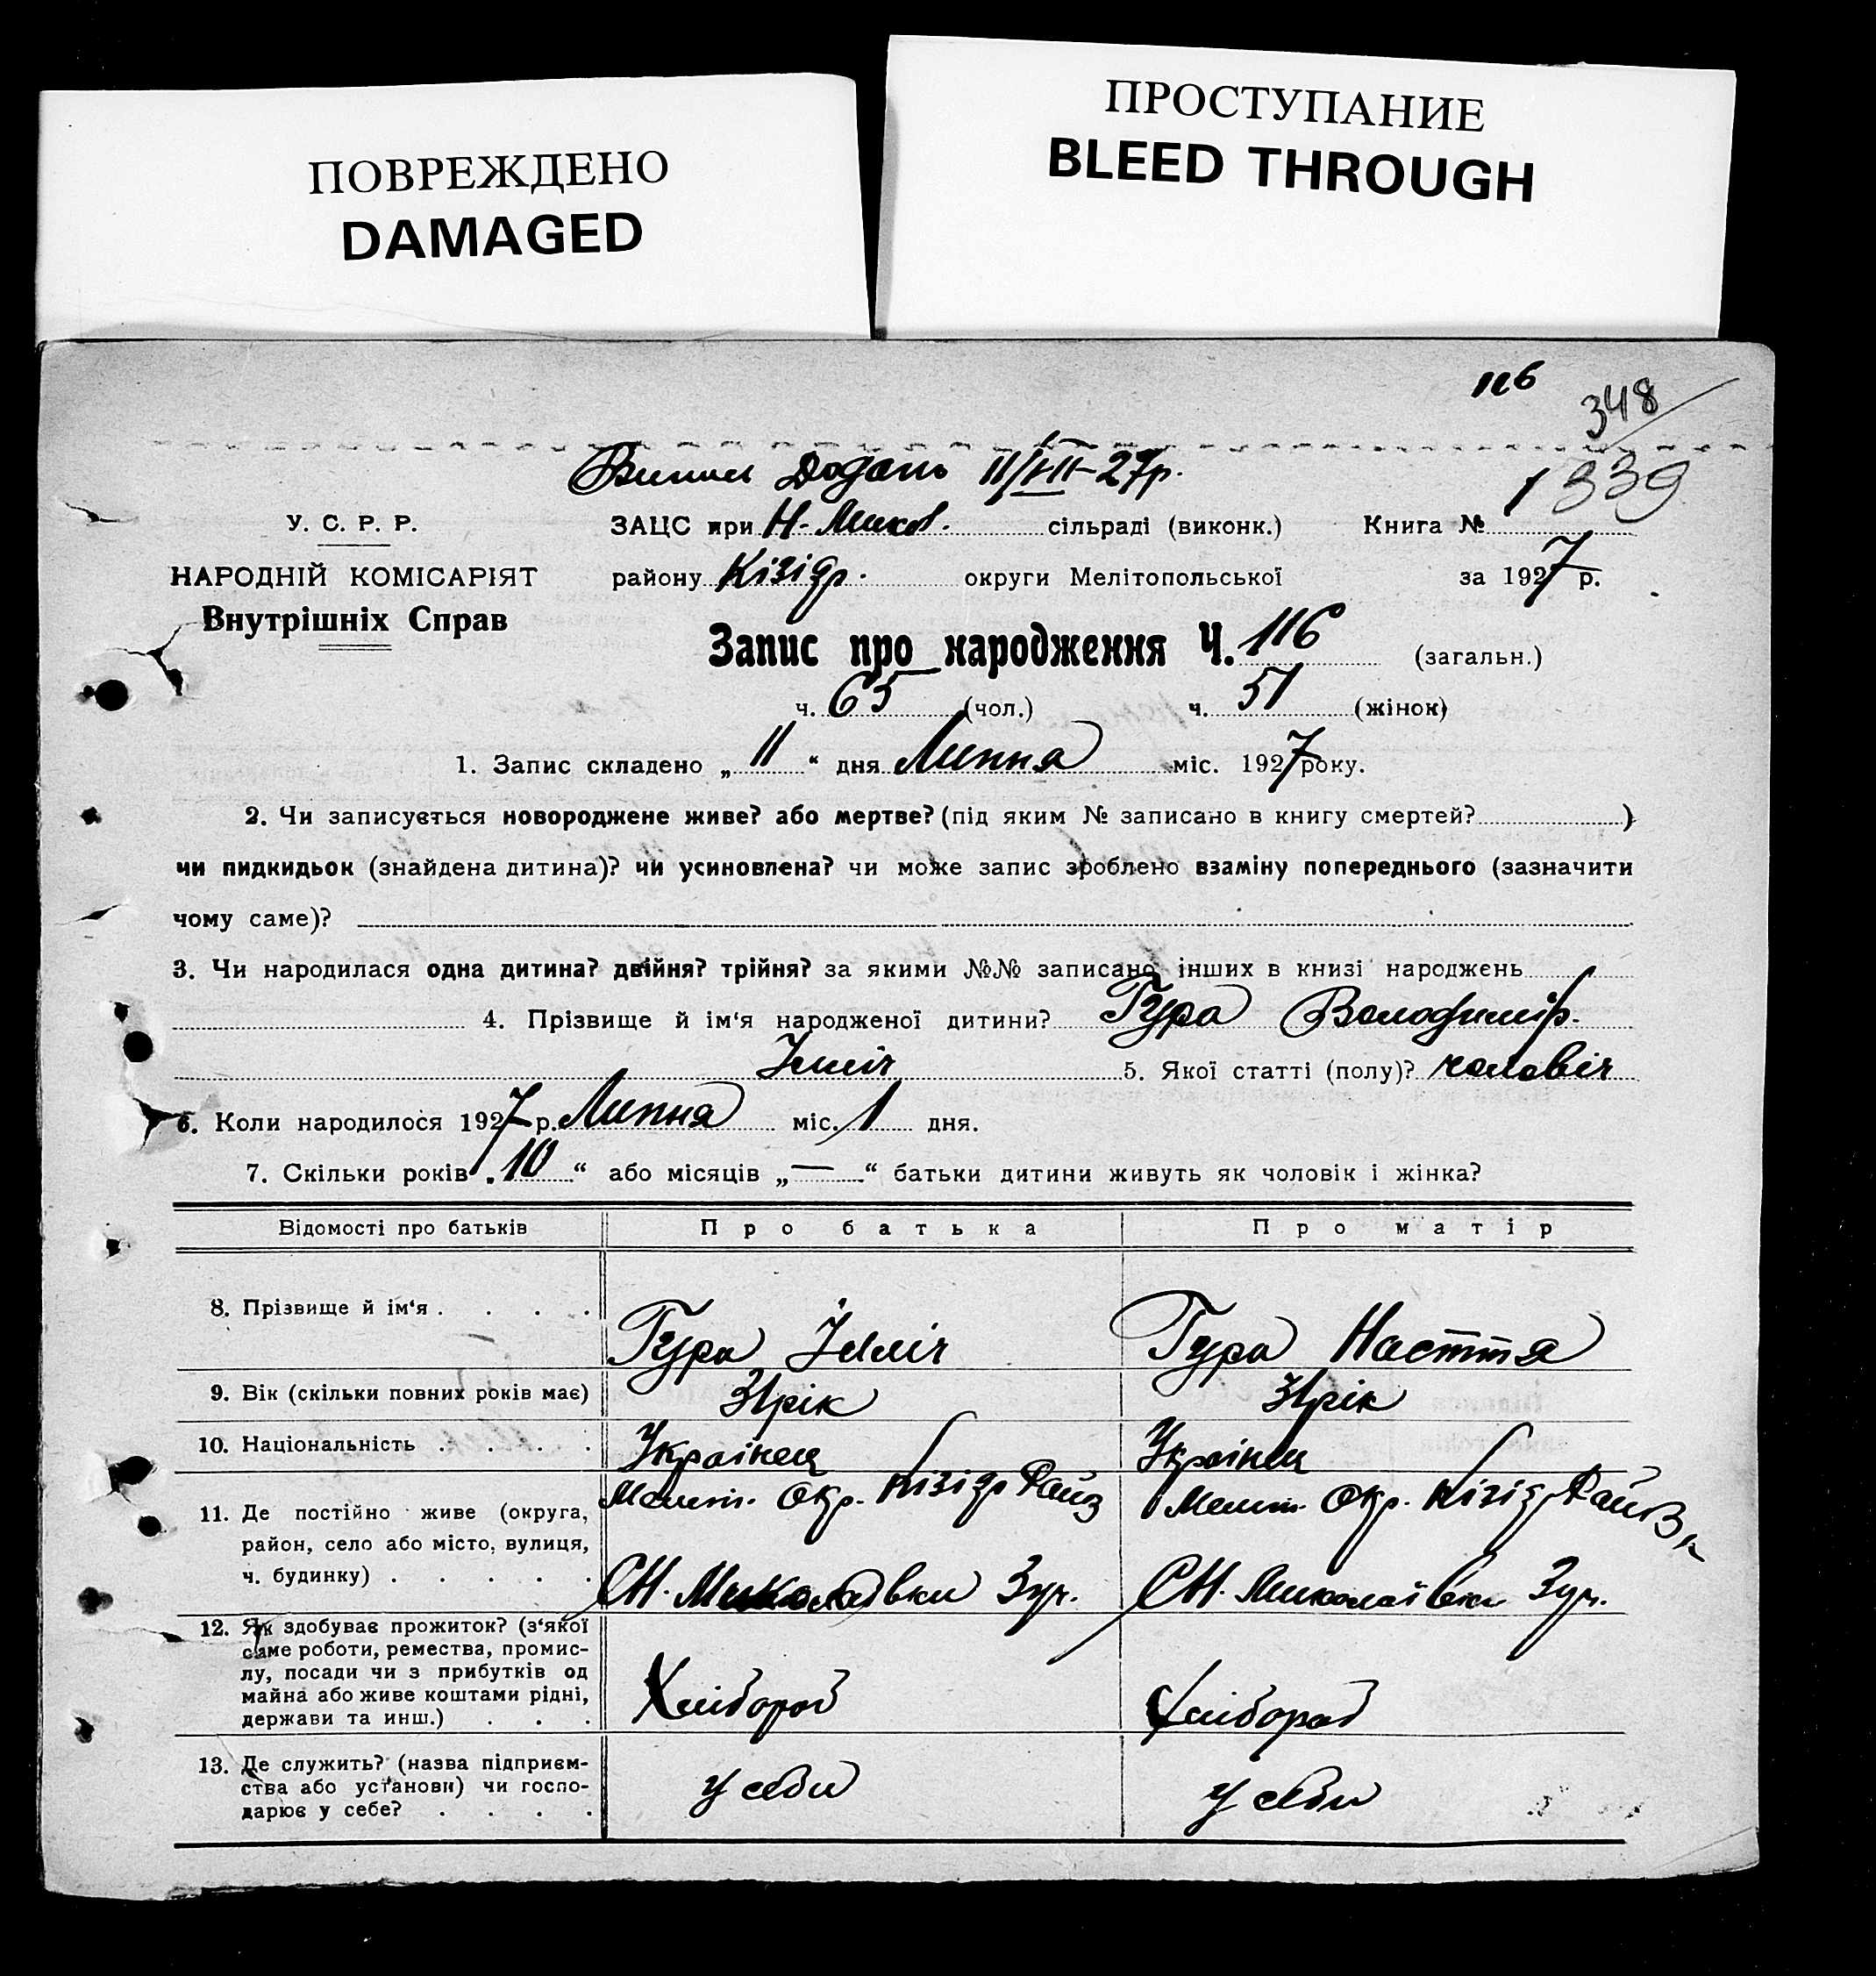 ПОВРЕЖДЕНО
DAMAGED
ПРОСТУПАНИЕ
BLEED THROUGH
116
348
339
Випис Додань 11/VII-27р.
У. С. Р. Р.
ЗАЦС при Н-Микол. сільраді (виконк.) Книга № 1
НАРОДНІЙ КОМІСАРІЯТ
району Кізідр. округи Мелітопольської за 1927 р.
Внутрішніх Справ
Запис про народження Ч. 116 (загальн.)
ч. 65 (чол.) ч. 51 (жінок)
1. Запис складено „ 11 “ дня Липня міс. 1927 року.
2. Чи записується новороджене живе? або мертве? (під яким № записано в книгу смертей? )
чи пидкидьок (знайдена дитина)? чи усиновлена? чи може запис зроблено взаміну попереднього (зазначити
чому саме)?
3. Чи народилася одна дитина? двійня? трійня? за якими №№ записано інших в книзі народжень
4. Прізвище й ім‘я народженої дитини? Гура Володимір.
5. Якої статті (полу)? чоловіч
6. Коли народилося 1927 р. Липня міс. 1 дня.
7. Скільки років „ 10 “ або місяців „ — “ батьки дитини живуть як чоловік і жінка?
Відомості про батьків Про батька Про матір
8. Прізвище й ім‘я . . . . Гура Гура Насття
9. Вік (скільки повних років має) 31рік 31рік
10. Національність . . . . Українец Українец
11. Де постійно живе (округа, Меліт. Окр. Кізідр Меліт. Окр. Кізідр
район, село або місто, вулиця,
ч. будинку) . . . . . СН. Миколаівки 3уч. СН. Миколаівки 3уч.
12. Як здобуває прожиток? (з‘якої
саме роботи, ремества, промис-
лу, посади чи з прибутків од
майна або живе коштами рідні,
держави та инш.) . . . Хлібороб Хлібороб
13. Де служить? (назва підприєм-
ства або установи) чи госпо-
дарює у себе? . . . . у себи у себи